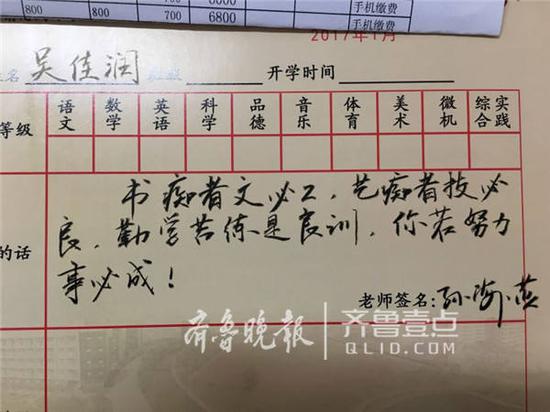 800 800 700 6000 手机缴费
800 700 6800 手机缴费
2017年1月
姓名 吴佳润 班级 开学时间
等级 语文 数学 英语 科学 品德 音乐 体育 美术 微机 综合实践
书痴者文必工,艺痴者技必
良,勤学苦练是良训,你若努力
的话
事必成!
老师签名:孙
齐鲁晚报 齐鲁壹点
QLID.COM